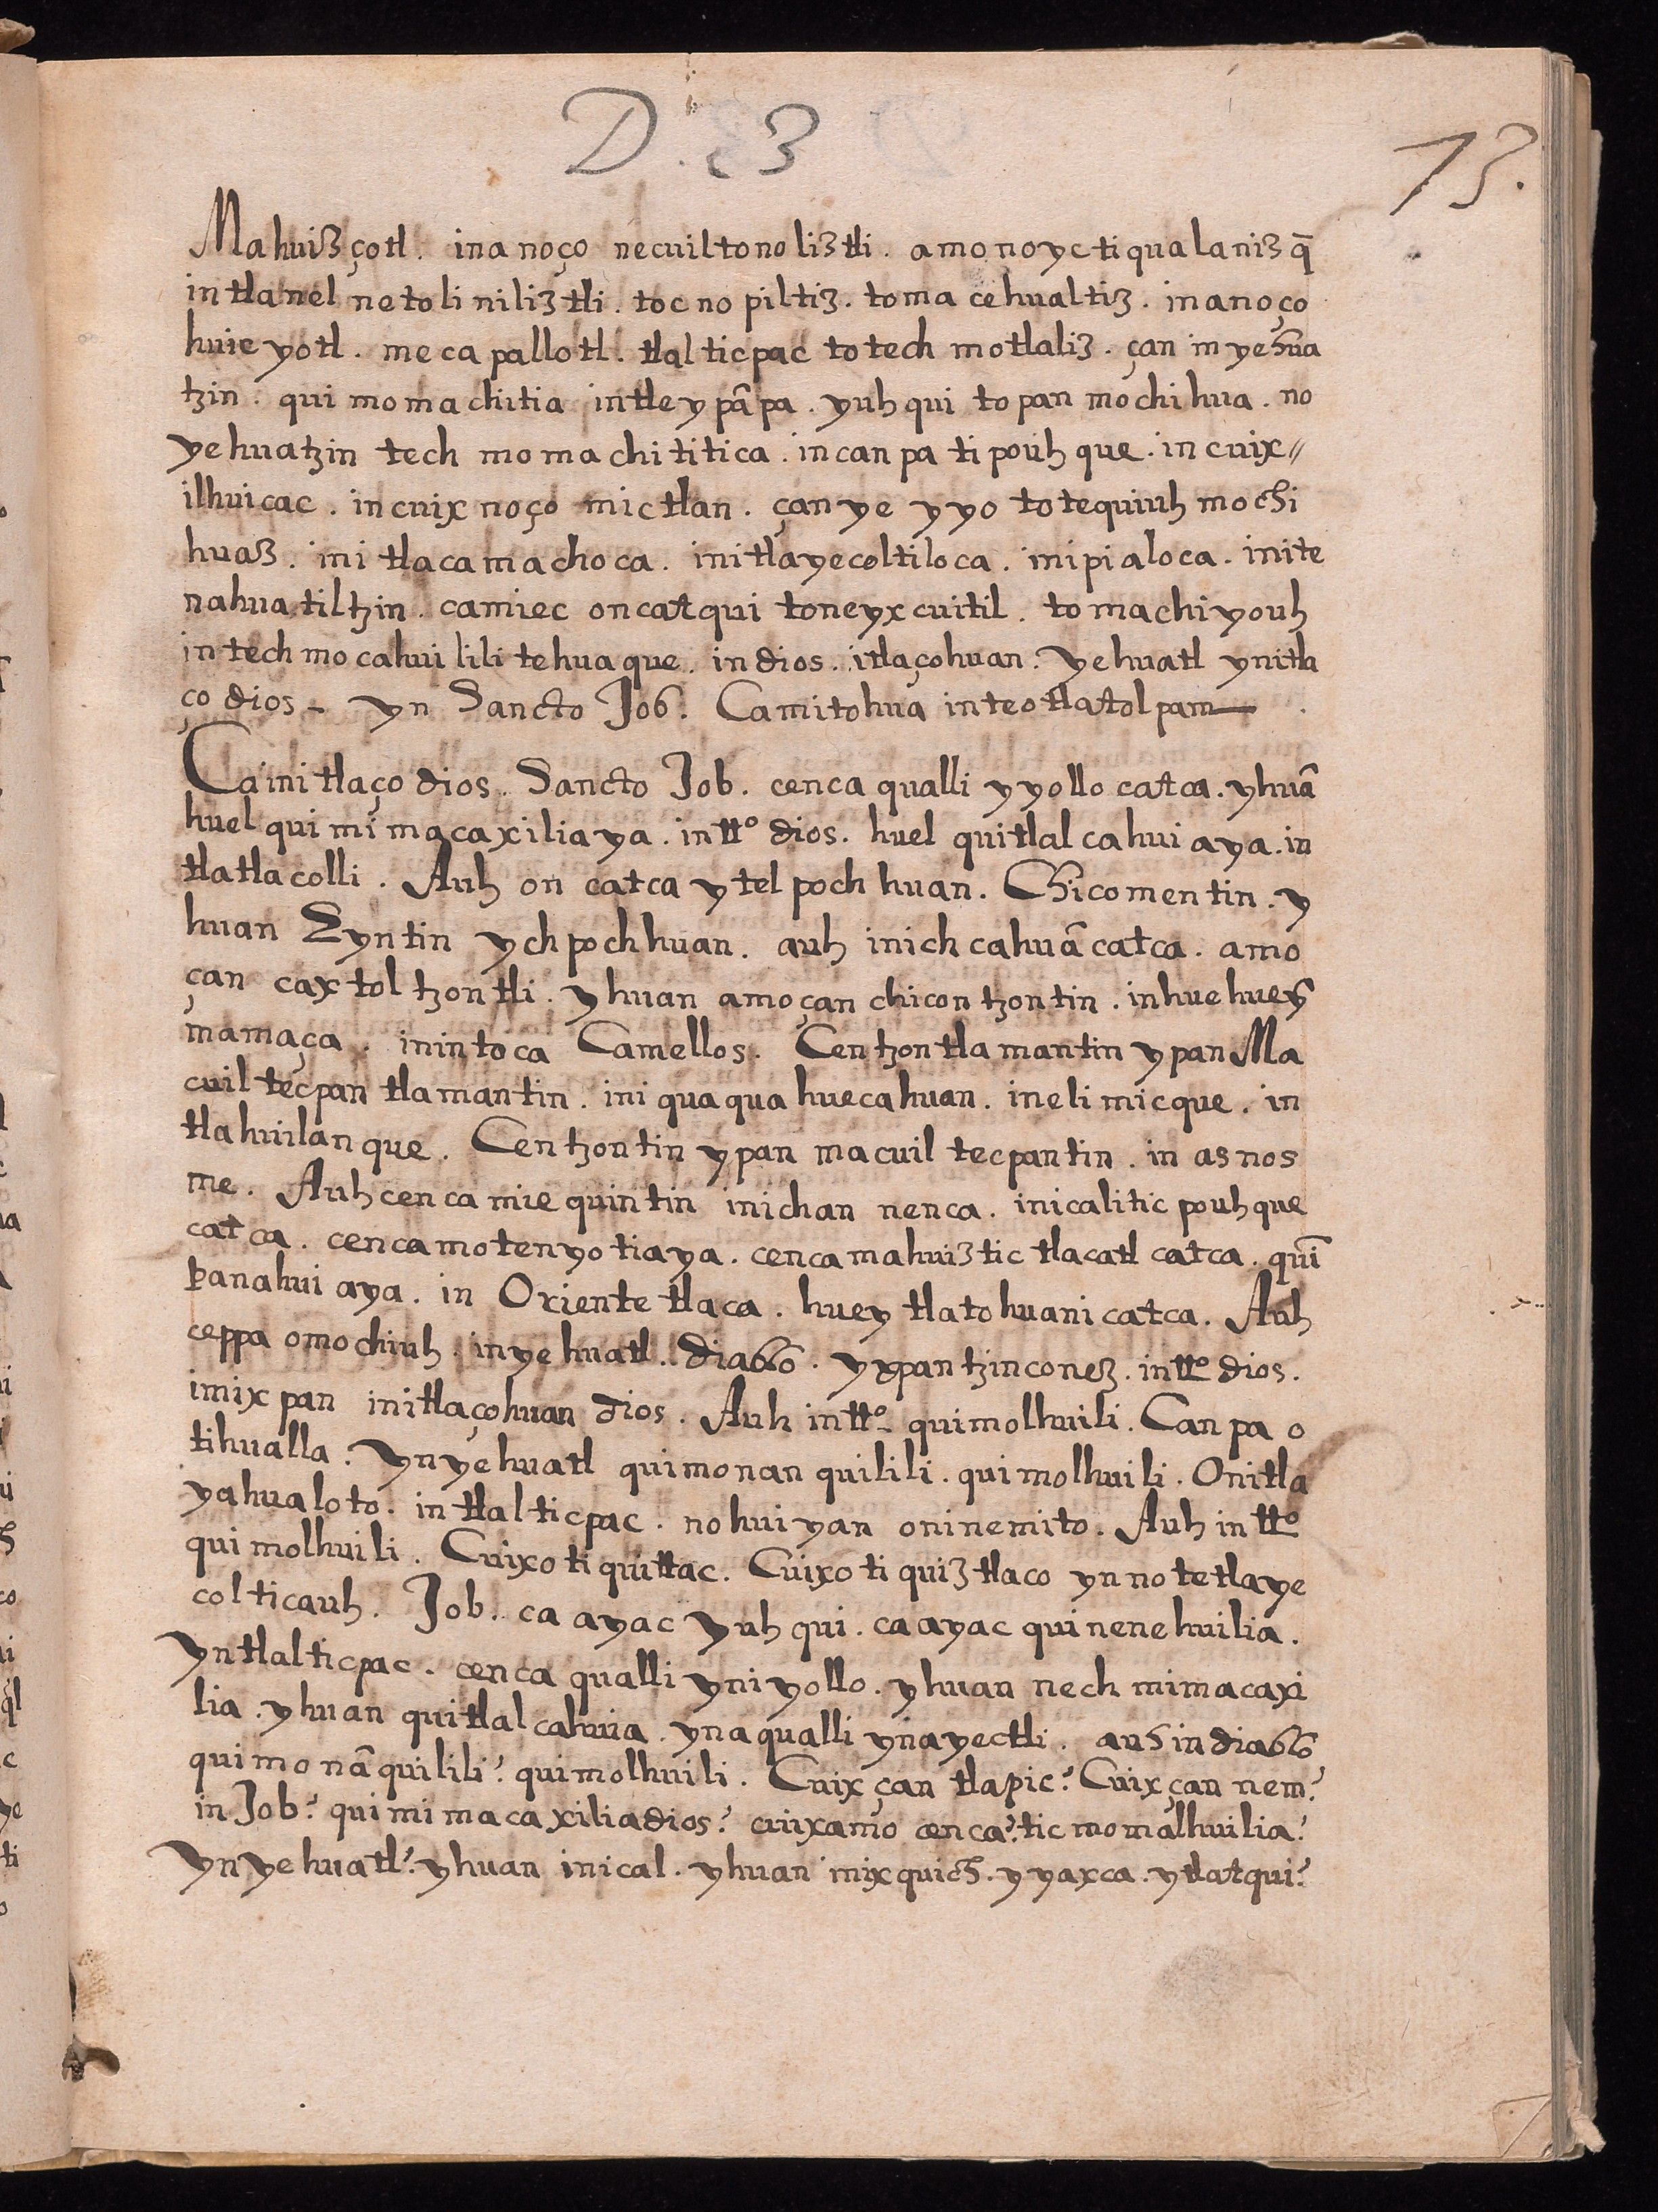 D. 23
13.
Mahuizçotl. inanoço necuiltonoliztli. amo noyc tiqualanizq̄
intlanel netoliniliztli. tocnopiltiz. tomacehualtiz. inanoço
huieyotl. mecapallotl. tlalticpac totech motlaliz. çan in yehua
tzin. quimomachitia intleypāpa. yuhqui topan mochihua. no
yehuatzin techmomachititica. incanpa tipouhque. incuix〃
ilhuicac. incuix noço mictlan. çanye yyo totequiuh mochi
huaz. initlacamachoca. initlayecoltiloca. inipialoca. inite
nahuatiltzin. camiec oncatqui toneyxcuitil. tomachiyouh
intechmocahuililitehuaque. in dios. itlaçohuan. yehuatl ynitla
ço dios - yn Sancto Job. Camitohua inteotlatolpam—
Ca initlaço dios. Sancto Job. cenca qualli yyollo catca. yhuā
huel quimimacaxiliaya. intt.º dios. huel quitlalcahuiaya. in
tlatlacolli. Auh on catca ytelpochhuan. Chicomentin. y
huan Eyntin ychpochhuan. auh inichcahuā catca. amo
çan caxtoltzontli. yhuan amoçan chicontzontin. inhuehuey
mamaça. inintoca Camellos. Centzontlamantin ypan Ma
cuiltecpantlamantin. iniquaquahuecahuan. inelimicque. in
tlahuilanque. Centzontin ypan macuiltecpantin. in asnos
me. Auh cenca miequintin inichan nenca. inicalitic pouhque
catca. cenca motenyotiaya. cenca mahuiztic tlacatl catca. quī
panahuiaya. in Oriente tlaca. huey tlatohuani catca. Auh
ceppa omochiuh. inyehuatl.. diablo. yxpantzinconez. intt.º dios.
imixpan initlaçohuan dios. Auh intt.º quimolhuili. Canpa o
tihualla. Ynyehuatl quimonanquilili. quimolhuili. Onitla
yahualoto. intlalticpac. nohuiyan oninemito. Auh intt.º
quimolhuili. Cuixotiquittac. Cuixotiquiztlaco ynnotetlaye
colticauh. Job.. ca ayac yuhqui. ca ayac quinenehuilia.
Yntlalticpac. cenca qualli yniyollo. yhuan nechmimacaxi
lia. yhuan quitlalcahuia. ynaqualli ynayectli. auh in diablo
quimonāquilili? quimolhuili. Cuix çan tlapic? Cuix çan nem?
in Job? quimimacaxilia dios? cuixamo cenca? ticmomalhuilia?
Ynyehuatl? yhuan inical. yhuan inixquich. yyaxca. ytlatqui?